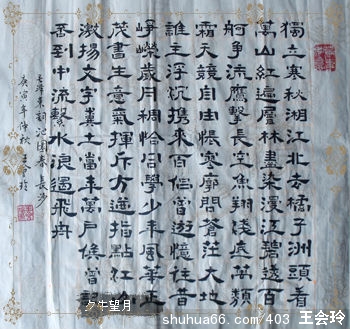 獨立寒秋湘江北去橘子洲頭看
萬山紅遍層林盡染漫江碧透百
舸爭流鷹擊長空魚翔淺底萬類
霜天競自由悵寥廓問蒼茫大地
誰主浮沉攜來百侶曾遊憶往昔
崢嶸歲月稠恰同學少年風華正
茂書生意氣揮斥方遒指點江
激揚文字糞土當年萬戶侯曾
否到中流擊水浪遏飛舟
毛澤東詞沁園春長沙
庚寅年仲秋王會玲
夕牛望月
shuhua66.com/403 王会玲